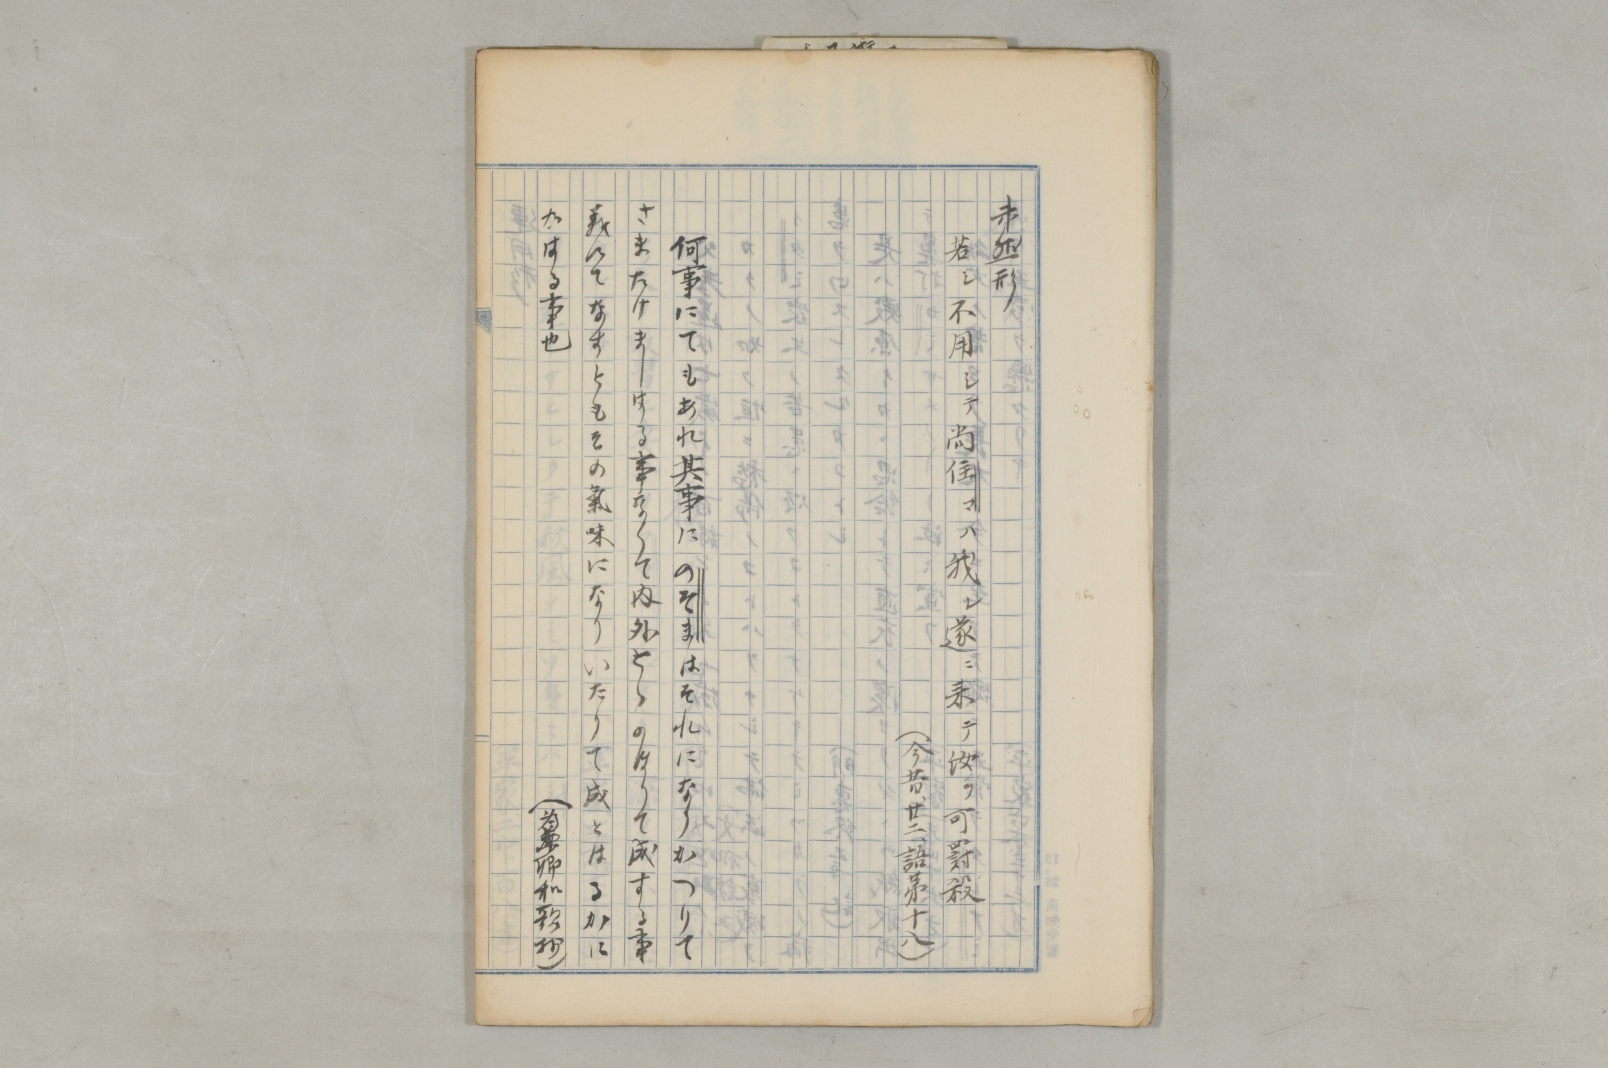 未然形
若シ不用シテ尚住マハ我レ遂ニ来テ汝ヲ可罸殺
(今昔、廿二語第十八)
何事にてもあれ其事にのぞまはそれになりかつりて
さまたけましはる事なくて内外とゝのほりて成する事
義にてなすともその氣味になりいたりて成とはるかに
かはる事也
(為兼卿和歌抄)